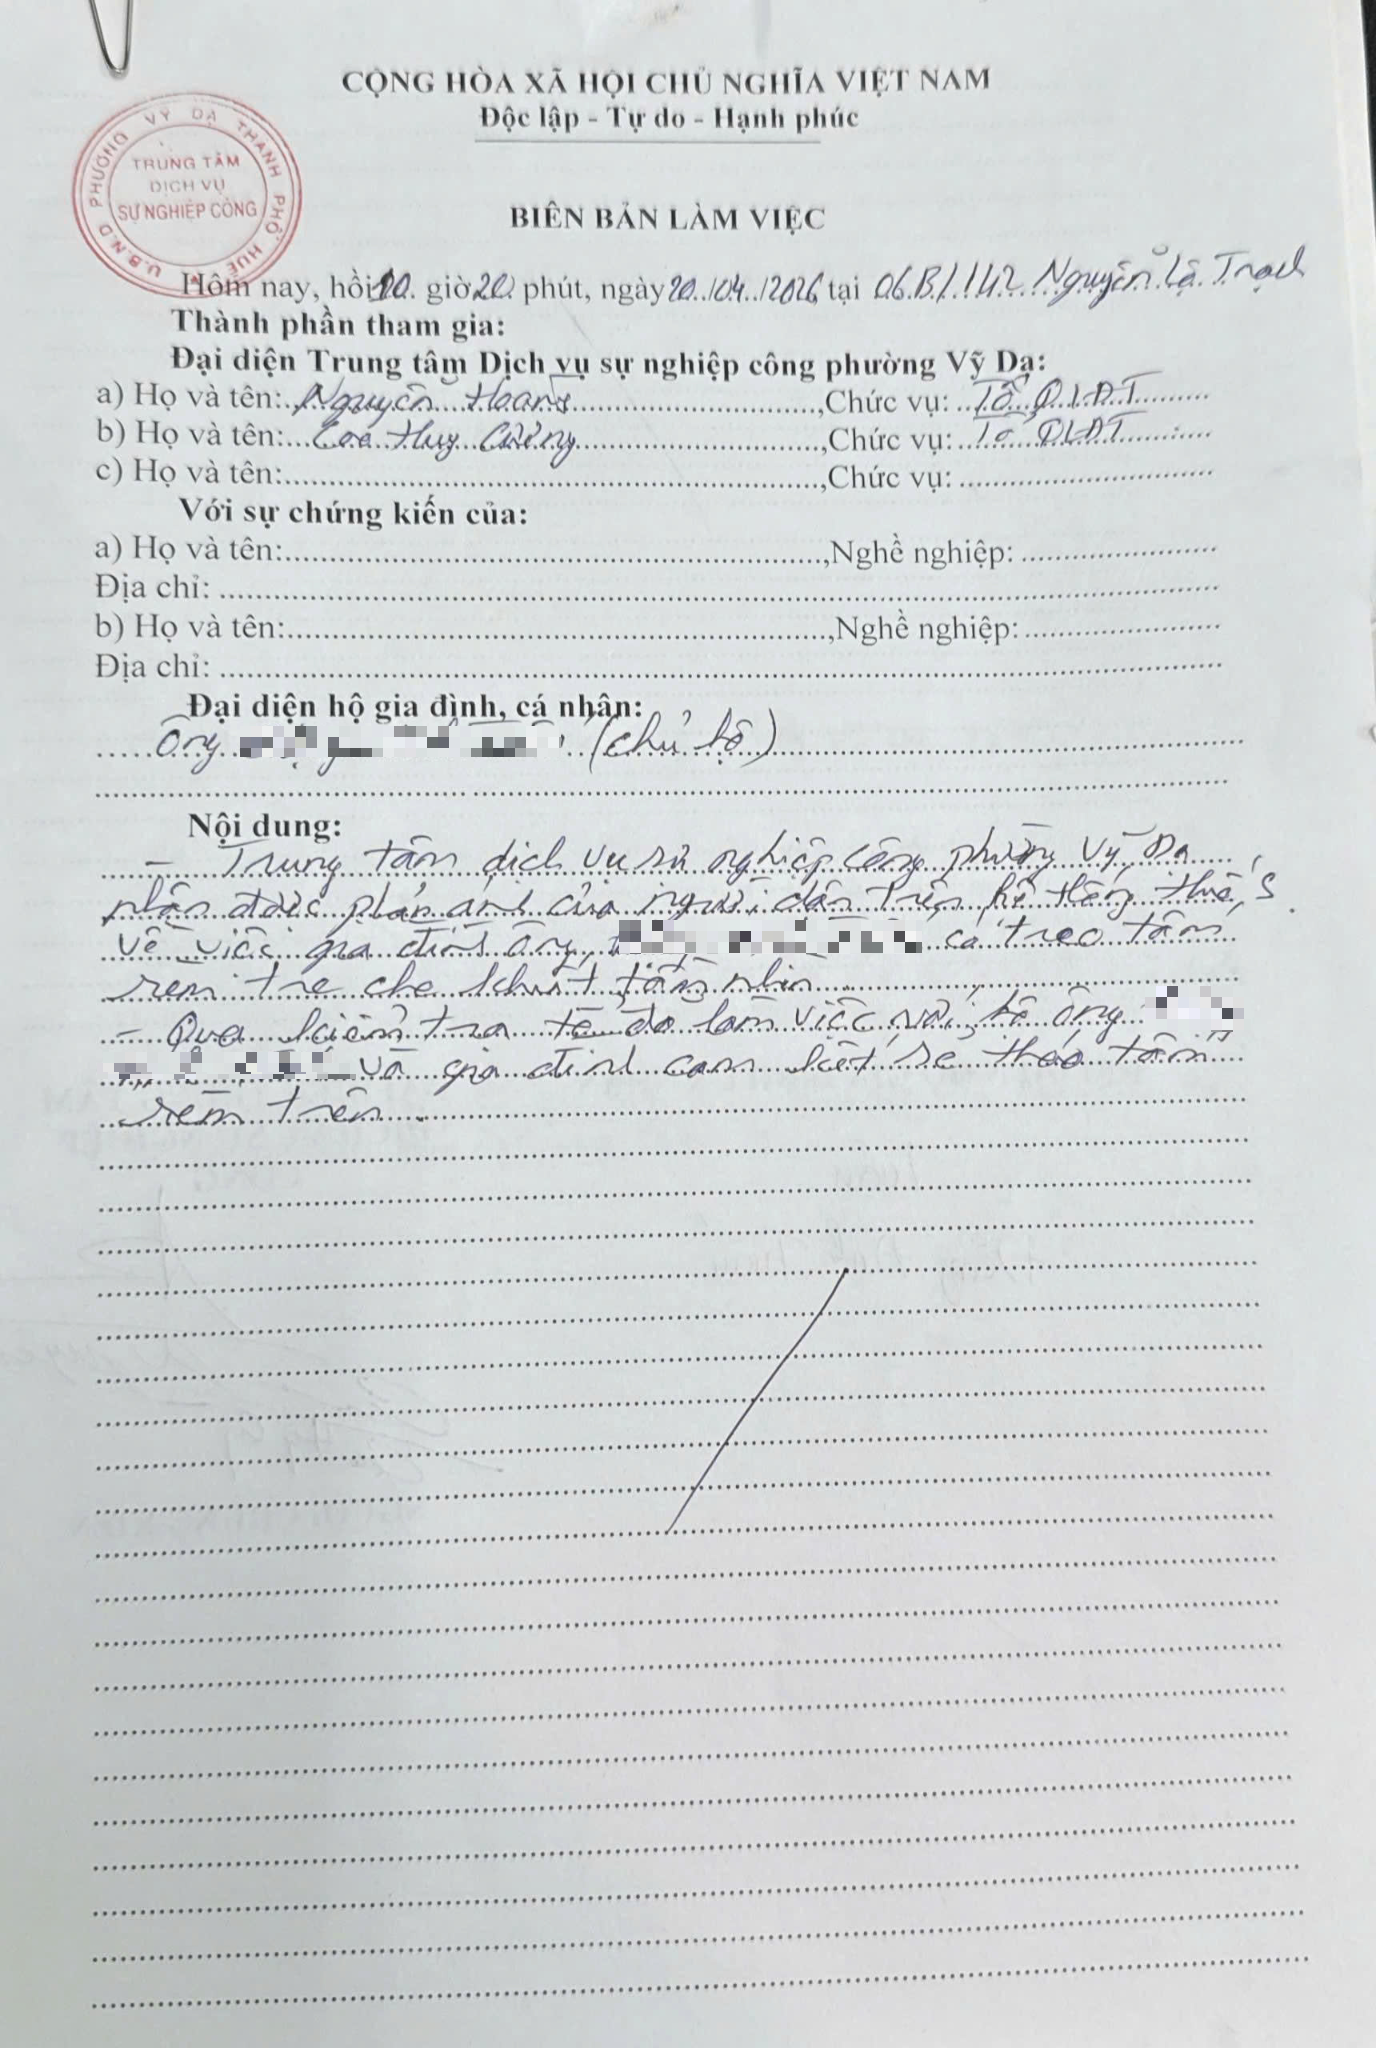 CỘNG HÒA XÃ HỘI CHỦ NGHĨA VIỆT NAM
Độc lập - Tự do - Hạnh phúc
U.B.N.D PHƯỜNG VỸ DẠ THÀNH PHỐ HUẾ
TRUNG TÂM
DỊCH VỤ
SỰ NGHIỆP CÔNG
BIÊN BẢN LÀM VIỆC
Hôm nay, hồi 10 giờ 20 phút, ngày 20/04/2026 tại 06B/142 Nguyễn Lộ Trạch
Thành phần tham gia:
Đại diện Trung tâm Dịch vụ sự nghiệp công phường Vỹ Dạ:
a) Họ và tên: Nguyễn Hoàng, Chức vụ: Tổ QLĐT
b) Họ và tên: Cao Huy Cường, Chức vụ: Tổ QLĐT
c) Họ và tên:, Chức vụ:
Với sự chứng kiến của:
a) Họ và tên:, Nghề nghiệp:
Địa chỉ:
b) Họ và tên:, Nghề nghiệp:
Địa chỉ:
Đại diện hộ gia đình, cá nhân:
Ông (chủ hộ)
Nội dung:
- Trung tâm dịch vụ sự nghiệp công phường Vỹ Dạ
nhận được phản ánh của người dân trên hệ thống
về việc gia đình ông có treo tấm
rèm tre che khuất tầm nhìn
- Qua kiểm tra tổ đã làm việc với hộ ông
và gia đình cam kết sẽ tháo tấm
rèm trên.